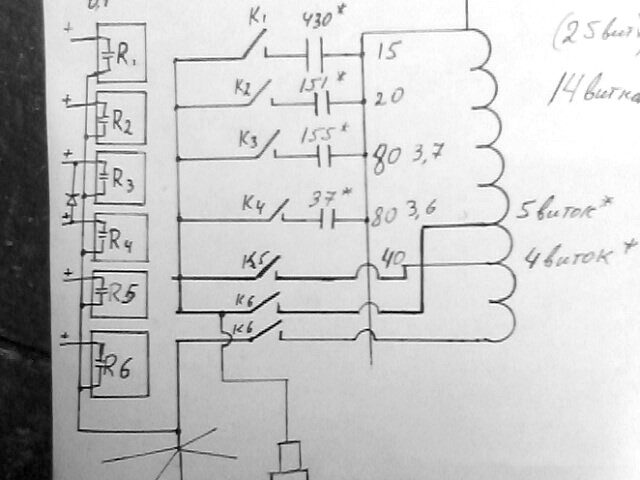 0,1
K1 430*
15
(25 вит
+ R1
K2 151*
20
14 витка
+ R2
K3 155*
80 3,7
+ R3
K4 37*
80 3,6
5 виток*
+ R4
K5 40
4 виток*
+ R5
K6
K6
+ R6